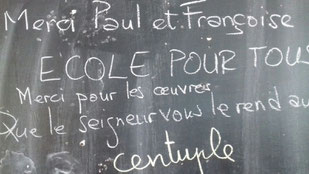 Merci Paul et Françoise
ECOLE POUR TOUS
Merci pour les œuvres
Que le seigneur vous le rend au
centuple